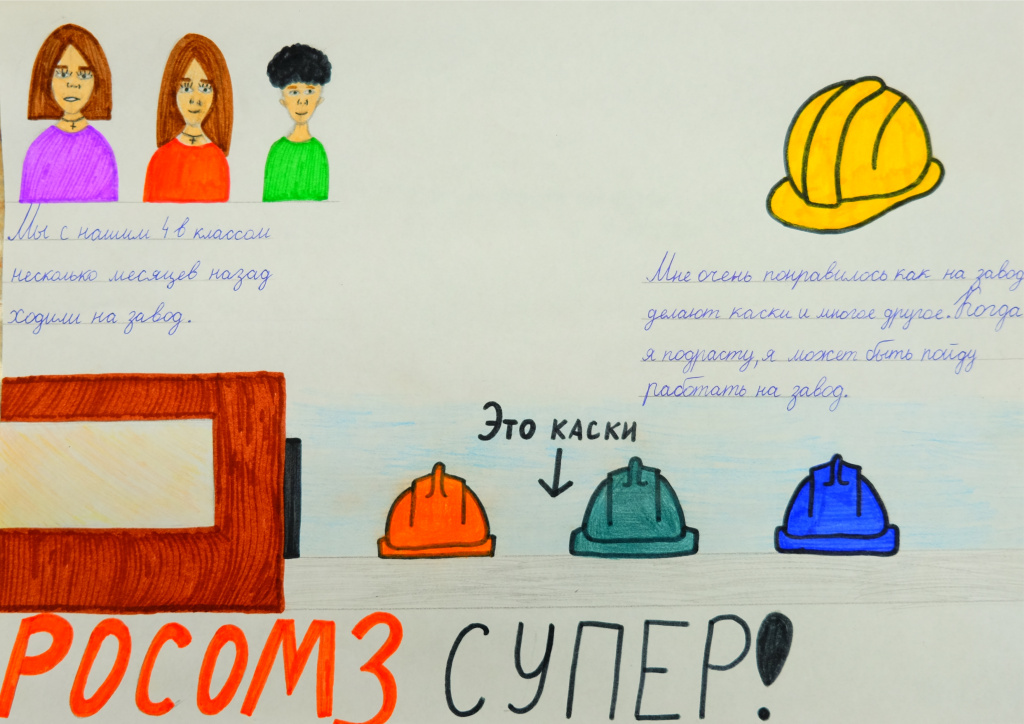 Мы с нашим 4 в классом
несколько месяцев назад
ходили на завод.
Мне очень понравилось как на завод
делают каски и многое другое. Когда
я подрасту, я может быть пойду
работать на завод.
Это каски
РОСОМЗ СУПЕР!